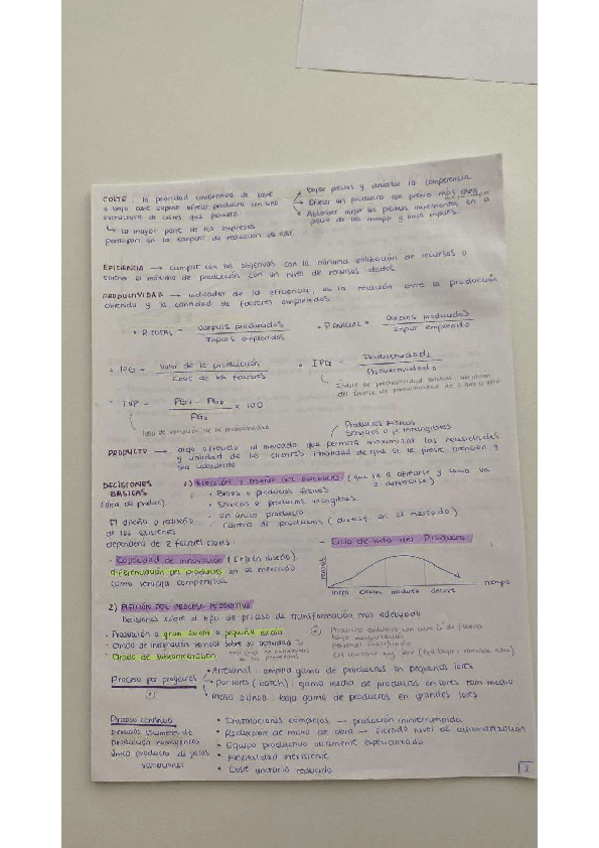 COSTE la prioridad competitiva de coste
o bajo coste supone ofrecer productos con una
estructura de costes que permita:
↳ La mayor parte de las empresas
participan en la de reducción de
bajar precios y desafiar la competencia
Ofrecer un producto con precio más
Absorber mejor los incrementos en el
de los y bajo inputs.
EFICIENCIA → cumplir con los objetivos con la mínima utilización de recursos o
obtener el máximo de producción con un nivel de recursos dados.
PRODUCTIVIDAD → indicador de la eficiencia, es la relación entre la producción
obtenida y la cantidad de factores empleados.
• P. TOTAL = Outputs producidos / Inputs empleados
• P. PARCIAL = Outputs producidos / Input empleado
• IPG = Valor de la producción / Coste de los factores
• IPG = Productividad1 / Productividad0
Índice de productividad global: variación
del índice de productividad de
• TVP = PG1 - PG0 / PG0 × 100
Tasa de variación de la productividad
Productos físicos
Servicios o intangibles
PRODUCTO → algo ofrecido al mercado que permita maximizar las necesidades
y utilidad de los clientes. Finalidad de que se le preste atención y
sea adquirido
DECISIONES
BÁSICAS
1) ELECCIÓN Y DISEÑO DEL PRODUCTO (qué se va a ofrecerse y como va
a ofrecerse)
• Bienes o productos físicos
• Servicios o productos intangibles
• Un único producto
• Cartera de productos (diversif. en el mercado)
El diseño o rediseño
de los existentes
dependerá de 2 factores claves:
- Capacidad de innovación (I+D en diseño)
- diferenciación del producto en el mercado
como ventaja competitiva
- Ciclo de vida del Producto
ventas
intro crecim madurez declive tiempo
2) ELECCIÓN DEL PROCESO PRODUCTIVO
Decisiones sobre el tipo de proceso de transformación más adecuado
• Producción a gran escala o pequeña escala
• Grado de integración vertical sobre su actividad
• Grado de subcontratación
Proceso por proyectos
• Artesanal: amplia gama de productos en pequeños lotes
• por lotes (batch): gama media de productos en lotes tam medio
• masa : baja gama de productos en grandes lotes
Proceso continuo
Producción homogénea
único producto de pocas
variaciones
• Instalaciones complejas → producción ininterrumpida
• Reducción de mano de obra → elevado nivel de automatización
• Equipo productivo altamente especializado
• Flexibilidad inexistente
• Coste unitario reducido
2